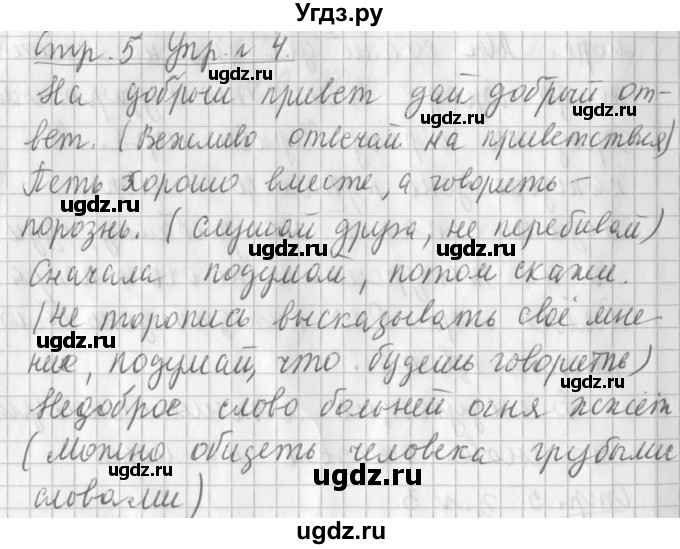 Угдз.ру
Стр. 5 Упр. № 4.
На добрый привет дай добрый от-
вет. (Вежливо отвечай на приветствия)
Петь хорошо вместе, а говорить -
порознь. (слушай друга, не перебивай)
Сначала подумай, потом скажи.
(Не торопись высказывать своё мне
ние, подумай, что будешь говорить)
Недоброе слово больней огня жжёт
(Можно обидеть человека грубыми
словами)
ugdz.ru
ugdz.ru
ugdz.ru
ugdz.ru
ugdz.ru
ugdz.ru
ugdz.ru
ugdz.ru
ugdz.ru
ugdz.ru
ugdz.ru
ugdz.ru